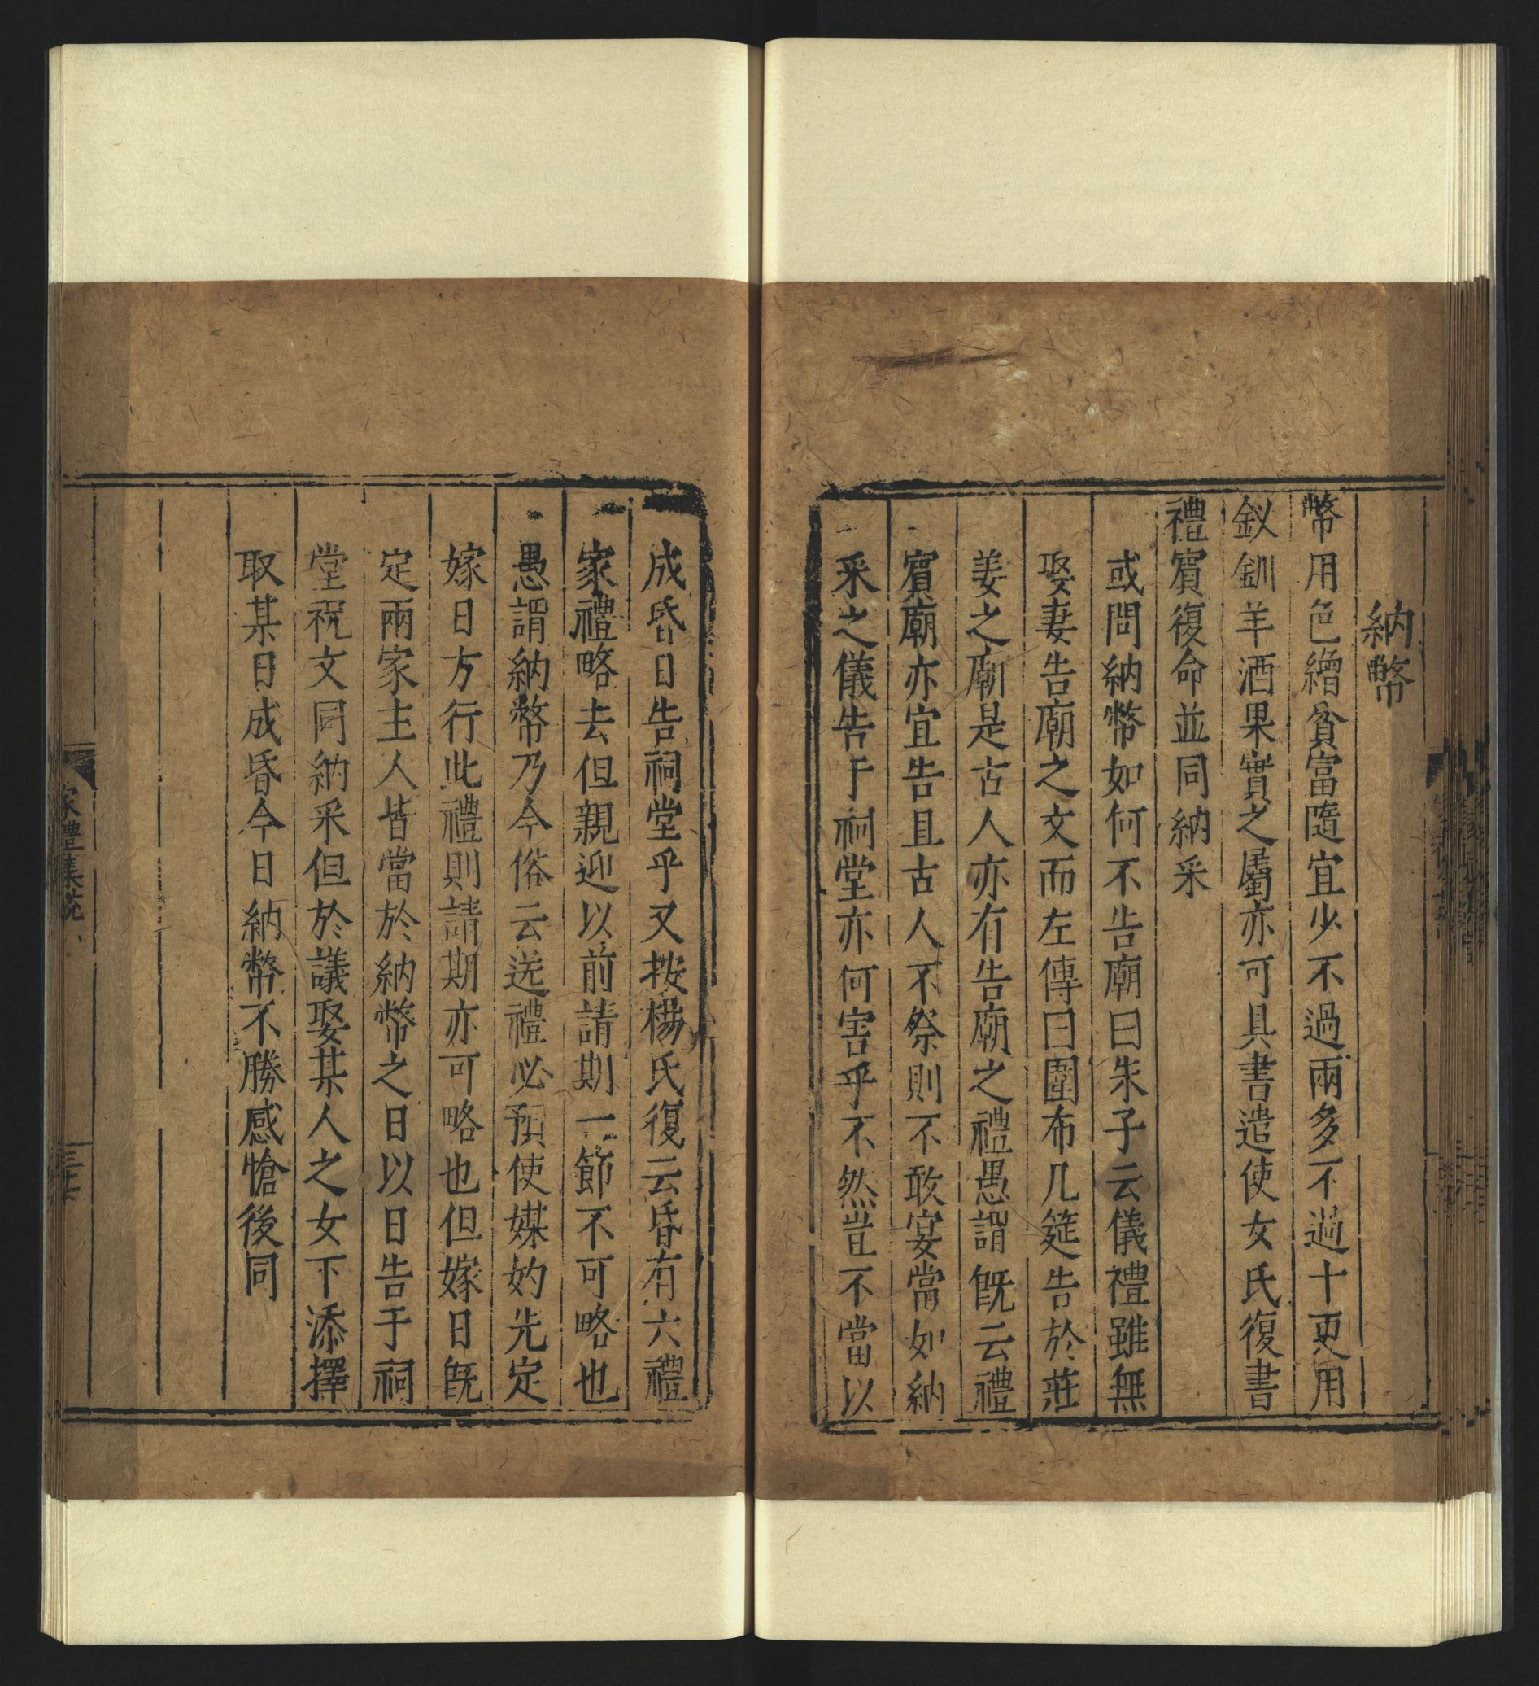 納幣
幣用色繒貧富隨宜少不過兩多不過十更用
釵釧羊酒果實之屬亦可具書遣使女氏復書
禮賓復命並同納采
或問納幣如何不告廟曰朱子云儀禮雖無
娶妻告廟之文而左傳曰圍布几筵告於莊
姜之廟是古人亦有告廟之禮愚謂旣云禮
賓廟亦宜告且古人不祭則不敢宴當如納
采之儀告于祠堂亦何害乎不然豈不當以
成昏日告祠堂乎又按楊氏復云昏有六禮
家禮略去但親迎以前請期一節不可略也
愚謂納幣乃今俗云送禮必預使媒妁先定
嫁日方行此禮則請期亦可略也但嫁日旣
定兩家主人皆當於納幣之日以日告于祠
堂祝文同納采但於議娶某人之女下添擇
取某日成昏今日納幣不勝感愴後同
家禮集